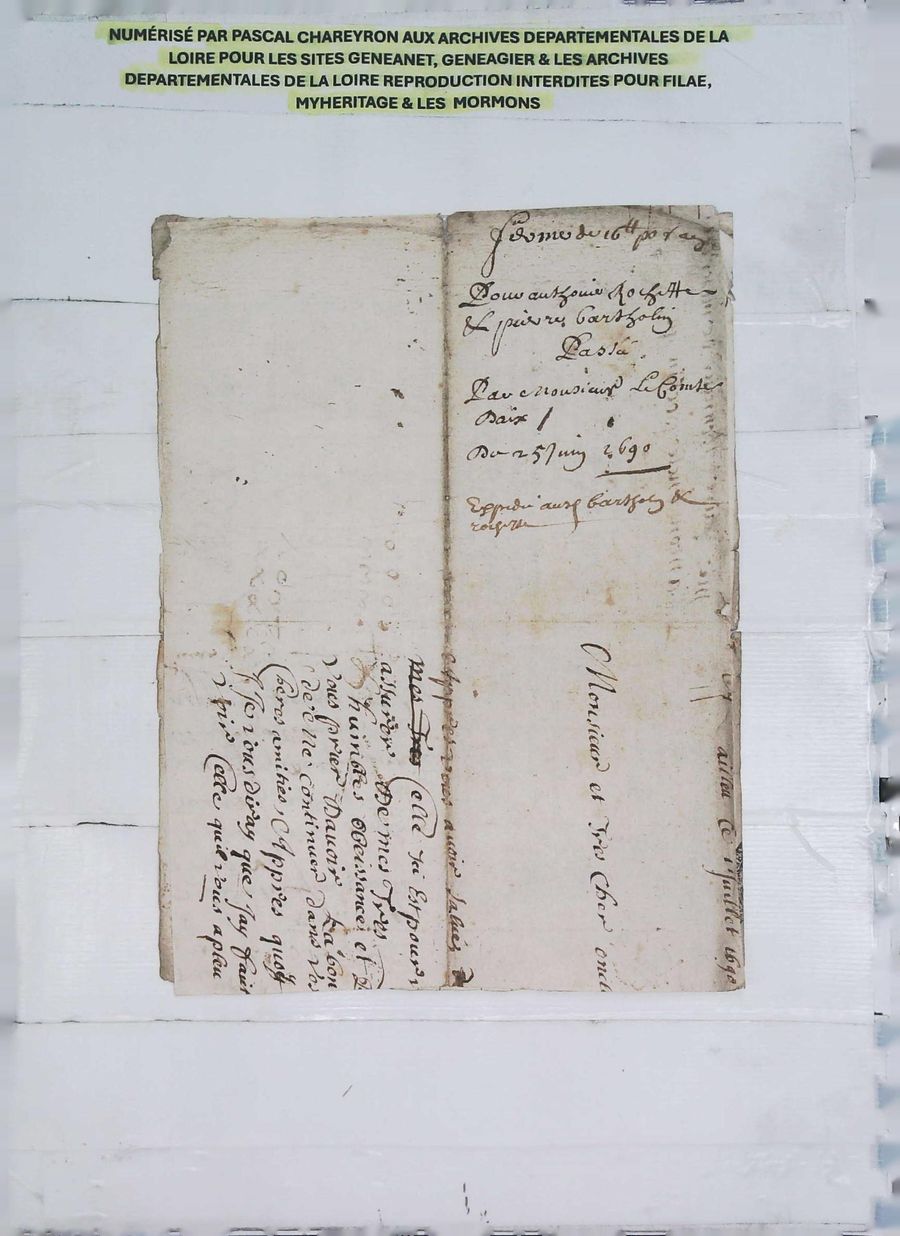 NUMÉRISÉ PAR PASCAL CHAREYRON AUX ARCHIVES DEPARTEMENTALES DE LA
LOIRE POUR LES SITES GENEANET, GENEAGIER & LES ARCHIVES
DEPARTEMENTALES DE LA LOIRE REPRODUCTION INTERDITES POUR FILAE,
MYHERITAGE & LES MORMONS
de 16tt
Pour anthoine Rochette
& pierre bartholin
Passé
Par Monsieur Le Comte
Daix
Du 25 Juin 1690
Expedié bartholin &
rochette
ce juillet 1690
Monsieur et tres cher oncle
vous avoir salué
mes tres Celle ci est pour
assurer De mes Tres
humbles obeissance et
vous prier Davoir La bon
de me continuer dans vos
cheres amities, Appres quoy
Je vous diray que Jay
Celle qu'il vous a pleu